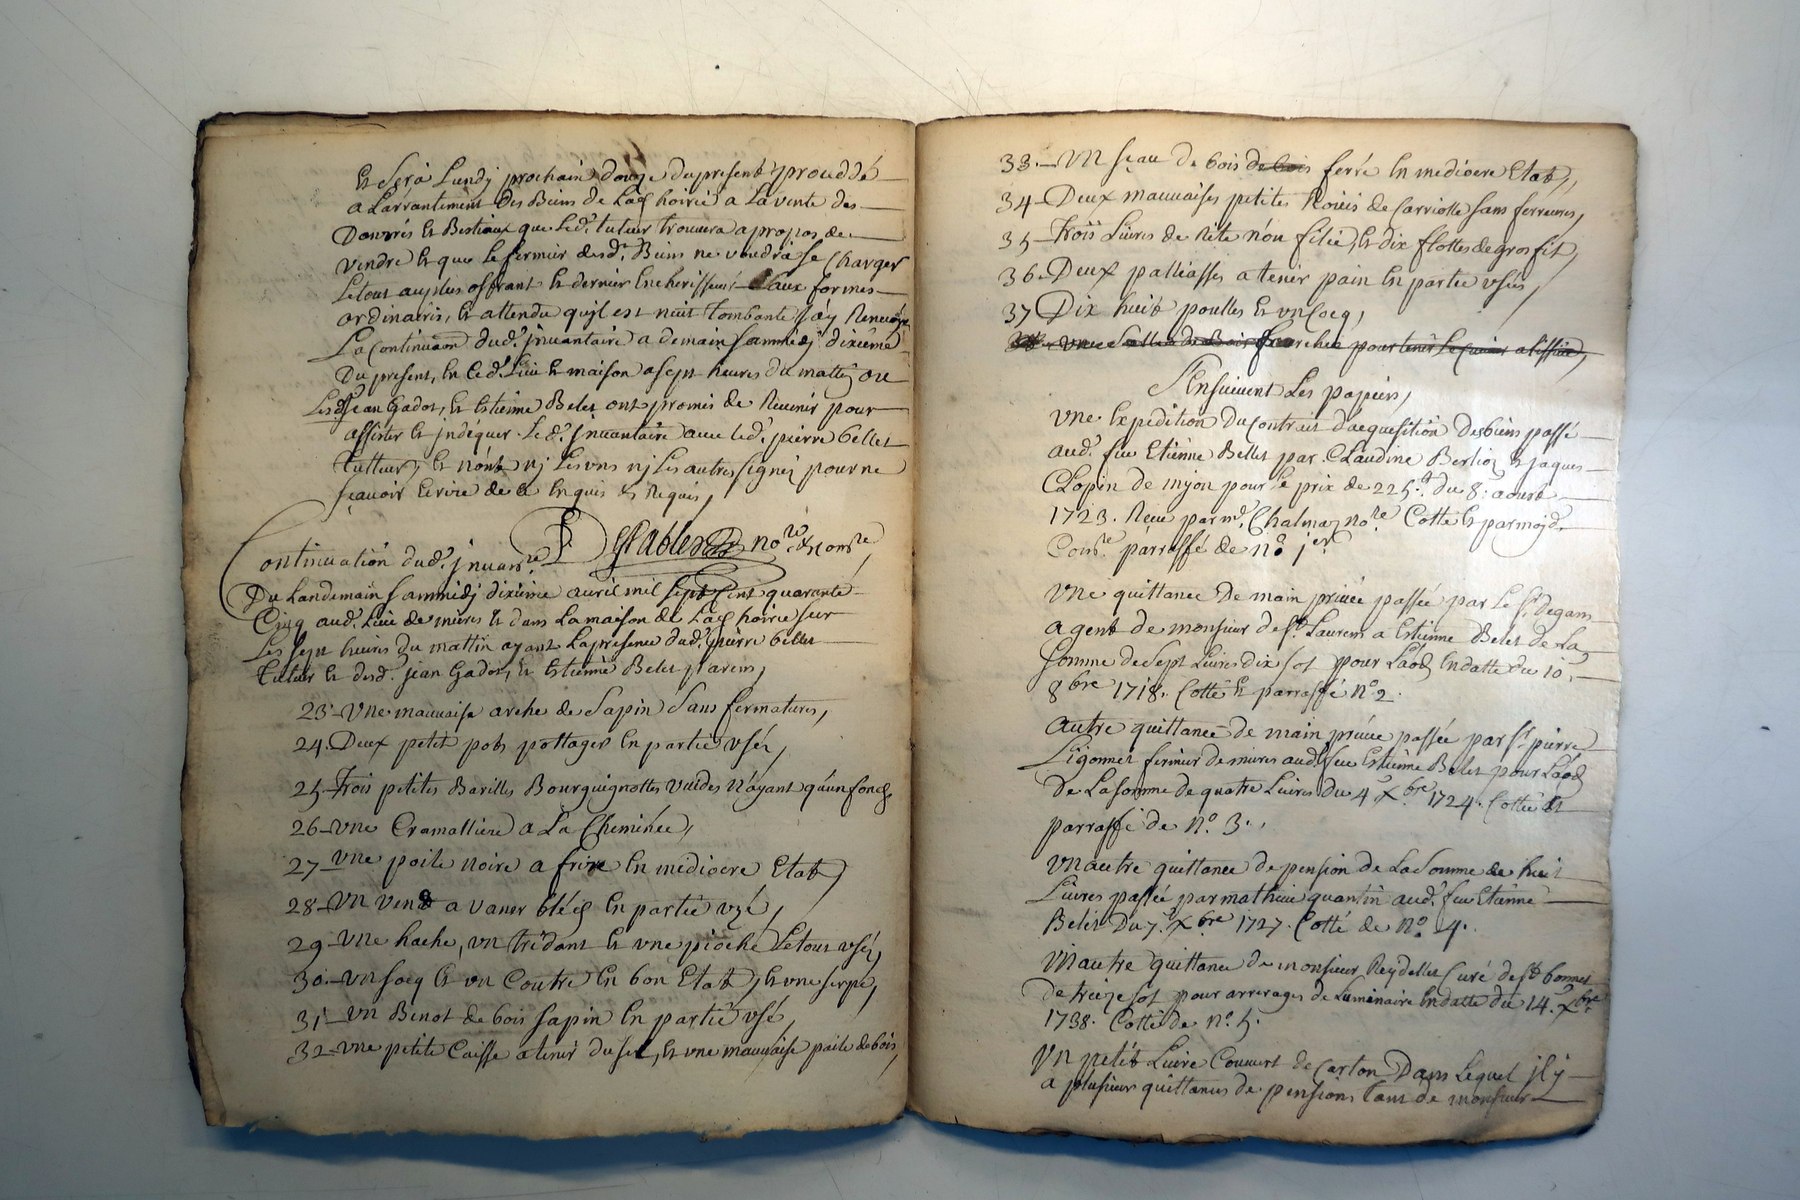 Et Sera Lundy prochain douze du present proceddé
a Larrantement des Biens de Lad hoirie a La vente des
Danrrés et Bestiaux que Led.t tuteur trouvera a propos de
vendre et que le fermier desd.ts Biens ne voudra se charger
Letout au plus offrant et dernier Encherisseur aux formes
ordinaires, et attendu qu'jl est nuit tombante j'ay Renvoyé
La continuaōn dud.t jnvantaire a demain Sammedj dixiéme
Du present, En Ce d.t Lieu et maison a sept heures du mattin ou
Lesd. Jean Gadot, et Estienne Belet ont promis de Revenir pour
assister et jndéquer Led.t jnvantaire avec led.t pierre bellet
tutteur, et n'ont nj Les vns nj Les autres signéz pour ne
sçavoir Ecrire de ce Enquis et Requis,
no.re
Continuation dud.t jnvan.re
Du Landemain Sammedj dixiéme avril mil Sept Cent quarante
Cinq aud.t Lieu de mures et dans La maison de Lad hoirie sur
Les sept heures du mattin ayant La presence dud.t pierre bellet
Tuteur et desd.t jean Gadot, et Estienne Belet parens,
23 - Vne mauvaise arche de Sapin Sans fermatures,
24. Deux petit pots pottager En partie vséz,
25 - Trois petites Barilles Bourguignottes vuides N'ayant qu'un fonds
26 - vne Cramalliere a La Cheminée,
27 - vne poile noire a frire En mediocre Etat,
28 - vn vend a vaner bléd En partie vzé,
29 - vne hache, vn tridant et vne pioche Letout vséz,
30 - vn socq et vn Coutre En bon Etat, et vne serpe,
31 - vn Benot de bois sapin En partie vsé,
32 - vne petite Caisse a tenir du sel, et vne mauvaise paile de bois,
33. - vn seau de bois de bois ferré En mediocre Etat,
34 - Deux mauvaises petites Rouës de Carriolle sans ferreures,
35 - Trois Livres de Rite n'on filée, et dix flottes de gros fil,
36 - Deux palliasses a tenir pain En partie vsées,
37 Dix huit poulles et vn Cocq,
S'Ensuivent Les papiers,
vne Expedition Du Contrat d'acquesition des biens passé
aud.t feu Etienne Bellet par Claudine Berlioz et jaques
Clopin de myon pour Le prix de 225.tt du 8.e aoust
1723. Reçu par m.e Chalmaz no.re Cotté et par moyd.
Com.re parraffé de n.o 1.er
vne quittance De main privée passée par Le S.r degans
agent de monsieur de S.t Laurens a Estienne Belet de La
somme de sept Livres dix sol pour Laod En datte du 10.e
8bre 1718. Cotté et parraffé N.o 2.
autre quittance de main privée passée par S.r pierre
Ligonnet fermier de mures aud.t feu Estienne Belet pour Laod
de La somme de quatre Livres du 4.e Xbre 1724. Cotté et
parraffé de N.o 3.
vn autre quittance de pension de La Somme de huit
Livres passée par mathieu quantin aud.t feu Etienne
Belet Du 7.e Xbre 1727. Cotté de N.o 4.
vn autre quittance de monsieur Reydellet Curé de S.t bonnet
de treize sol pour arrerages de Luminaire En datte du 14. Xbre
1738. Cotté de N.o 5.
Vn petit Livre Couvert de Carton Dans Lequel jl y
a plusieur quittances de pensions tant de monsieur